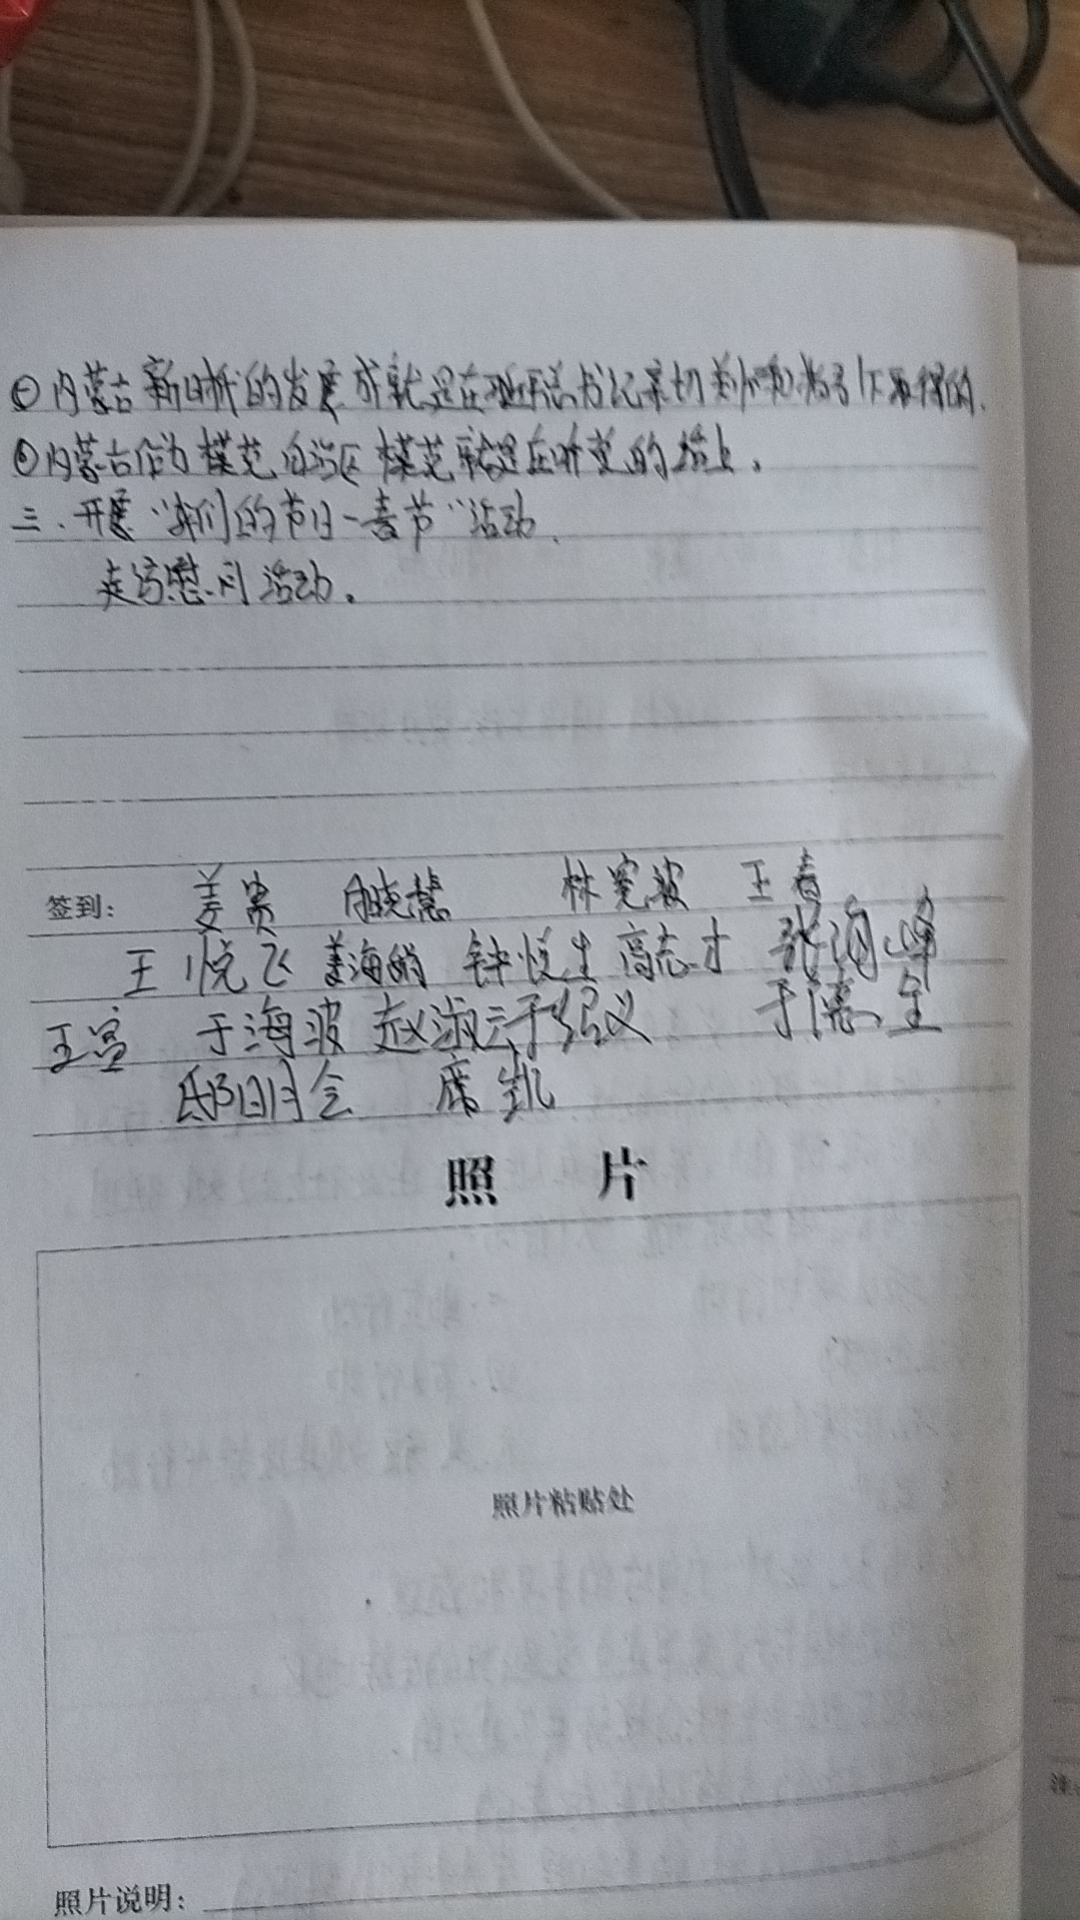 ⑤内蒙古新时代的发展成就是在习近平总书记亲切关怀和指引下取得的.
⑥内蒙古作为模范自治区 模范就是在听党的话上。
三.开展“我们的节日-春节”活动.
走访慰问活动。
签到: 姜贵 晓慧 林宪波 王春
王悦飞 姜海鹏 钟悦生 高志才 张海峰
王宣 于海波 赵淑云 于绍义 于德全
邸明会 席凯
照 片
照片粘贴处
照片说明:
注